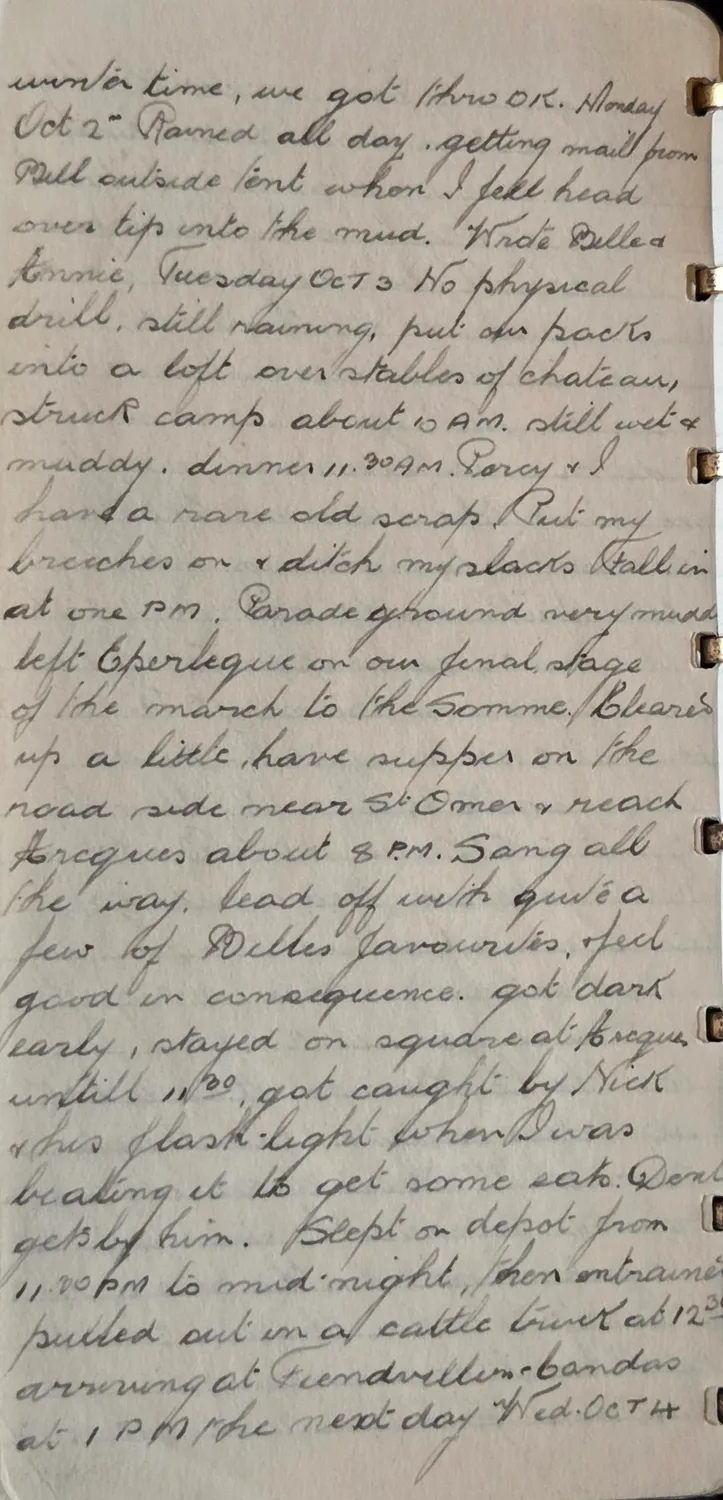 winter time, we got thro OK. Monday
Oct 2nd Rained all day. getting mail from
Bill outside tent when I fell head
over tip into the mud. Wrote Belle &
Annie, Tuesday Oct 3 No physical
drill, still raining, put our packs
into a loft over stables of chateau,
struck camp about 10 AM. still wet &
muddy. dinner 11.30 AM. Percy & I
have a rare old scrap. Put my
breeches on & ditch my slacks Fall in
at one PM. Parade ground very mudd
left Eperlegue on our final stage
of the march to the Somme. Cleared
up a little, have supper on the
road side near St Omer & reach
Arcques about 8 P.M. Sang all
the way. lead off with quite a
few of Belles favourites, & feel
good in consequence. got dark
early, stayed on square at Arcques
untill 11 30, got caught by Nick
& his flash-light when I was
beating it to get some eats. Dont
gets by him. Slept on depot from
11.30 PM to mid-night, then entrained
pulled out in a cattle truck at 12 30
arriving at Fiendvillers-Candas
at 1 PM the next day Wed. Oct 4